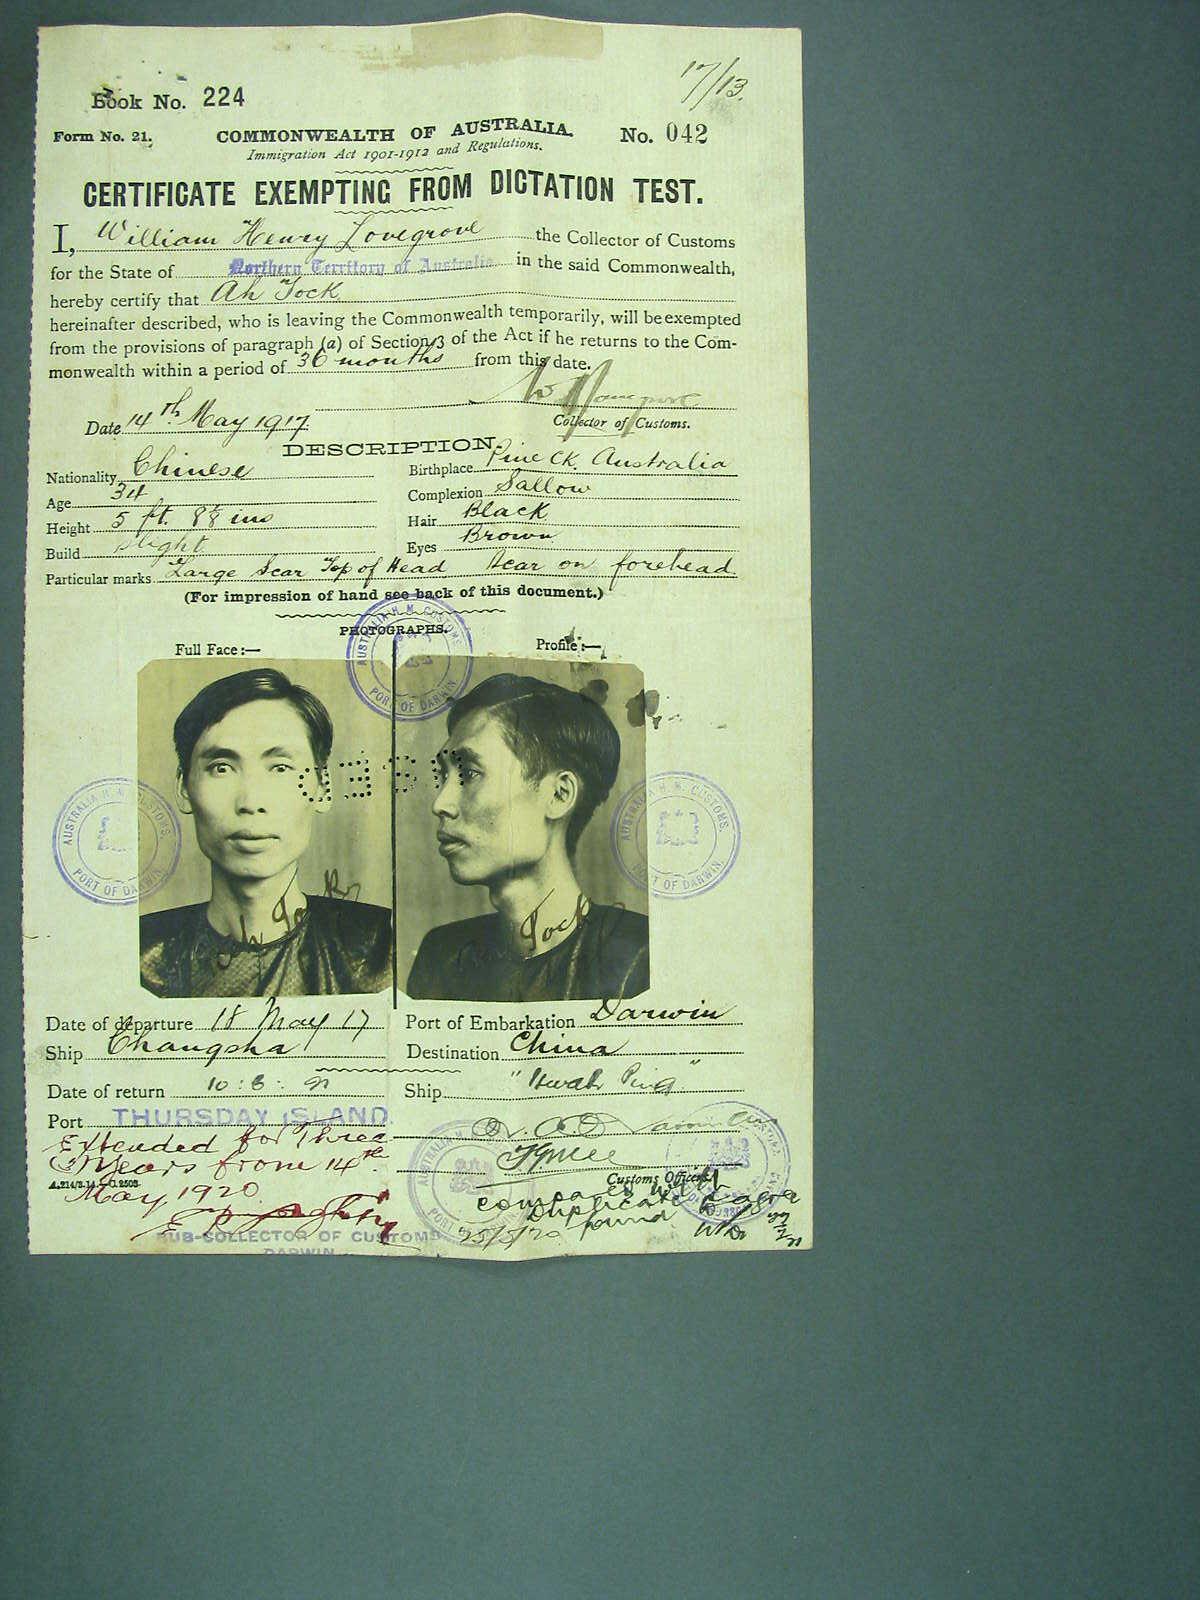 17/13.
Book No. 224
Form No. 21.
COMMONWEALTH OF AUSTRALIA.
No. 042
Immigration Act 1901-1912 and Regulations.
CERTIFICATE EXEMPTING FROM DICTATION TEST.
I, William Henry Lovegrove the Collector of Customs
for the State of Northern Territory of Australia in the said Commonwealth,
hereby certify that Ah Tock
hereinafter described, who is leaving the Commonwealth temporarily, will be exempted
from the provisions of paragraph (a) of Section 3 of the Act if he returns to the Com-
monwealth within a period of 36 months from this date.
Date 14th May 1917.
Collector of Customs.
DESCRIPTION.
Nationality Chinese
Birthplace Pine Ck. Australia
Age 34
Complexion Sallow
Height 5 ft. 8⅝ ins
Hair Black
Build slight
Eyes Brown
Particular marks Large Scar Top of Head Scar on forehead
(For impression of hand see back of this document.)
PHOTOGRAPHS.
Full Face:—
Profile:—
AUSTRALIA H. M. CUSTOMS.
PORT OF DARWIN
USED
AUSTRALIA H. M. CUSTOMS.
PORT OF DARWIN
AUSTRALIA H. M. CUSTOMS.
PORT OF DARWIN.
Ah Tock
Tock
Date of departure 18 May 17
Port of Embarkation Darwin
Ship Changsha
Destination China
Date of return
Ship "Hwah Ping"
Port THURSDAY ISLAND.
Extended for Three
(3) Years from 14th
May 1920
A.214/3.14.
Customs Officers.
compared with
Duplicate
found
25/5/20
SUB-COLLECTOR OF CUSTOMS
DARWIN